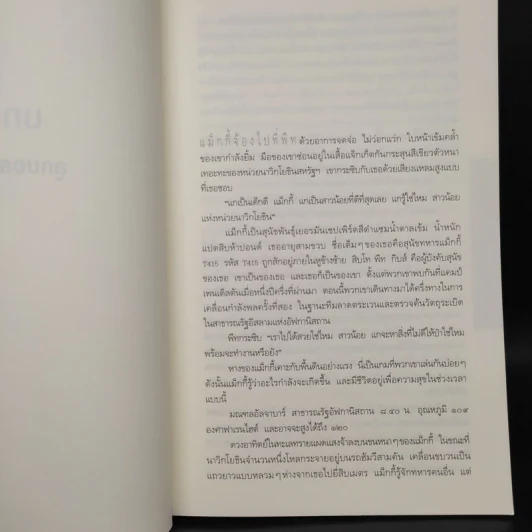 แม็กกี้จ้องไปที่พีทด้วยอาการจดจ่อ ไม่วอกแวก ใบหน้าเข้มคล้ำ
ของเขากำลังยิ้ม มือของเขาซ่อนอยู่ในเสื้อแจ็กเก็ตกันกระสุนสีเขียวตัวหนา
เทอะทะของหน่วยนาวิกโยธินสหรัฐฯ เขากระซิบกับเธอด้วยเสียงแหลมสูงแบบ
ที่เธอชอบ
"แกเป็นเด็กดี แม็กกี้ แกเป็นสาวน้อยที่ดีที่สุดเลย แกรู้ใช่ไหม สาวน้อย
แห่งหน่วยนาวิกโยธิน"
แม็กกี้เป็นสุนัขพันธุ์เยอรมันเชปเพิร์ดสีดำแซมน้ำตาลเข้ม น้ำหนัก
แปดสิบห้าปอนด์ เธออายุสามขวบ ชื่อเต็มๆ ของเธอคือสุนัขทหารแม็กกี้
T415 รหัส T415 ถูกสักอยู่ภายในหูข้างซ้าย สิบโท พีท กิบส์ คือผู้บังคับสุนัข
ของเธอ เขาเป็นของเธอ และเธอก็เป็นของเขา ตั้งแต่พวกเขาพบกันที่แคมป์
เพนเดิลตันเมื่อหนึ่งปีครึ่งที่ผ่านมา ตอนนี้พวกเขาเดินทางมาได้ครึ่งทางในการ
เคลื่อนกำลังพลครั้งที่สอง ในฐานะทีมลาดตระเวนและตรวจค้นวัตถุระเบิด
ในสาธารณรัฐอิสลามแห่งอัฟกานิสถาน
พีทกระซิบ "เราไปได้สวยใช่ไหม สาวน้อย แกจะหาสิ่งที่ไม่ดีให้ป๋าใช่ไหม
พร้อมจะทำงานหรือยัง"
หางของแม็กกี้เคาะกับพื้นดินอย่างแรง นี่เป็นเกมที่พวกเขาเล่นกันบ่อยๆ
ดังนั้นแม็กกี้รู้ว่าอะไรกำลังจะเกิดขึ้น และมีชีวิตอยู่เพื่อความสุขในช่วงเวลา
แบบนี้
มณฑลอัลจาบาร์ สาธารณรัฐอัฟกานิสถาน ๘.๔๐ น. อุณหภูมิ ๑๐๙
องศาฟาเรนไฮต์ และอาจจะสูงได้ถึง ๑๒๐
ดวงอาทิตย์ในทะเลทรายแผดแสงจ้าลงบนขนหนาๆ ของแม็กกี้ ในขณะที่
นาวิกโยธินจำนวนหนึ่งโหลกระจายอยู่บนรถฮัมวีสามคัน เคลื่อนขบวนเป็น
แถวยาวแบบหลวมๆ ห่างจากเธอไปยี่สิบเมตร แม็กกี้รู้จักทหารคนอื่น แต่